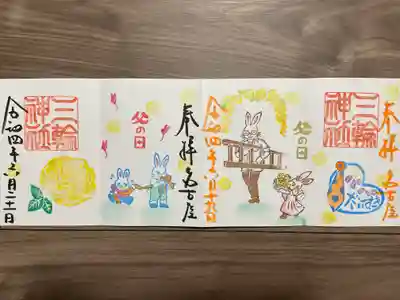 奉拝 名古屋
三輪
神社
父の日
令和四年六月十九日
奉拝 名古屋
父の日
三輪
神社
令和四年六月二十一日